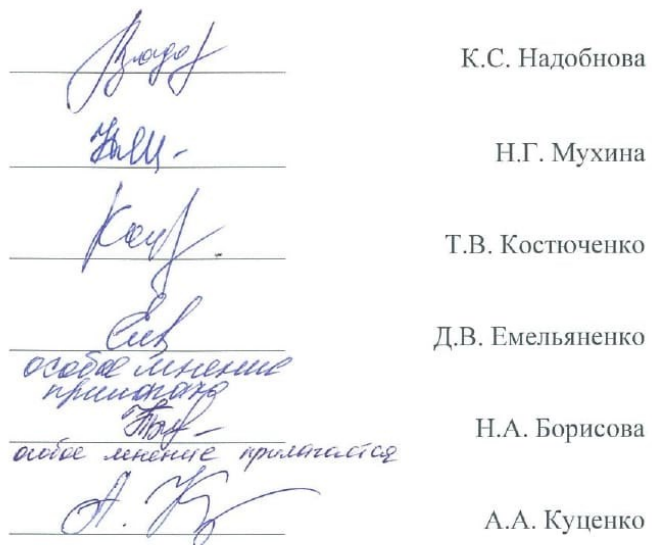 К.С. Надобнова
Н.Г. Мухина
Т.В. Костюченко
Д.В. Емельяненко
особое мнение
прилагаю
Н.А. Борисова
особое мнение прилагается
А.А. Куценко